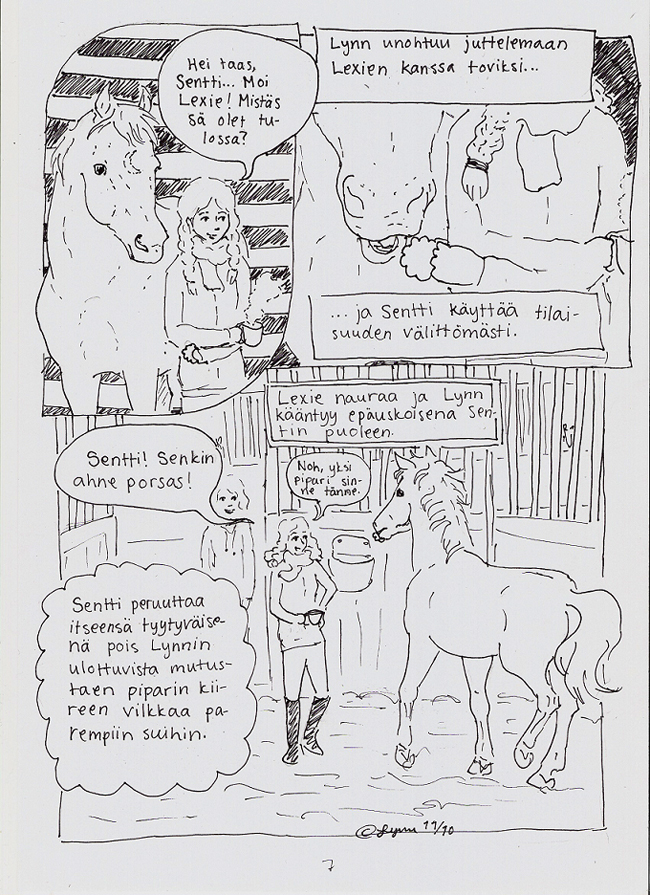 Hei taas,
Sentti... Moi
Lexie! Mistäs
sä olet tu-
lossa?
Lynn unohtuu juttelemaan
Lexien kanssa toviksi...
... ja Sentti käyttää tilai-
suuden välittömästi.
Lexie nauraa ja Lynn
kääntyy epäuskoisena Sen-
tin puoleen.
Sentti! Senkin
ahne porsas!
Noh, yksi
pipari sin-
ne tänne.
Sentti peruuttaa
itseensä tyytyväise-
nä pois Lynnin
ulottuvista mutus-
taen piparin kii-
reen vilkkaa pa-
rempiin suihin.
©Lynn 11/10
7